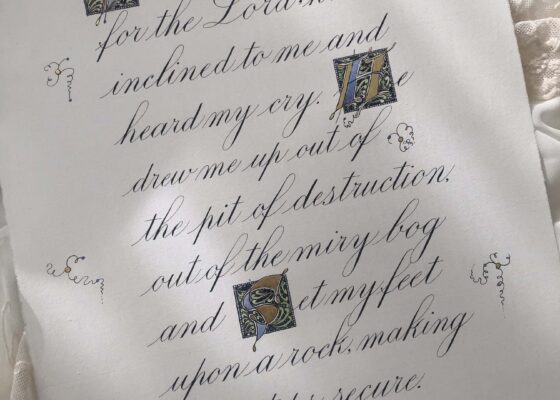 for the Lord;
inclined to me and
heard my cry. He
drew me up out of
the pit of destruction,
out of the miry bog
and Set my feet
upon a rock, making
secure.